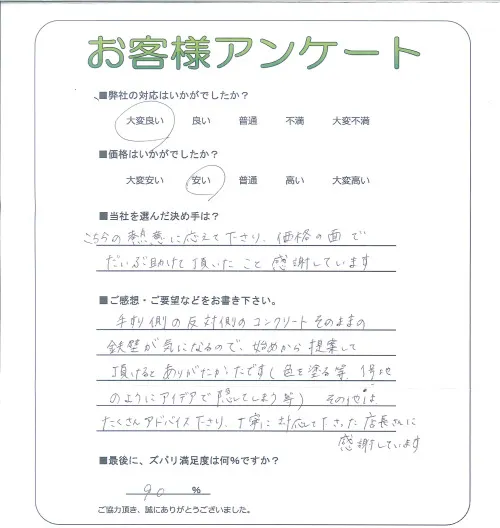 お客様アンケート
■弊社の対応はいかがでしたか？
大変良い 良い 普通 不満 大変不満
■価格はいかがでしたか？
大変安い 安い 普通 高い 大変高い
■当社を選んだ決め手は？
こちらの熱意に応えて下さり、価格の面で
だいぶ助けて頂いたこと感謝しています
■ご感想・ご要望などをお書き下さい。
手すり側の反対側のコンクリートそのままの
鉄壁が気になるので、始めから提案して
頂けるとありがたかったです(色を塗る等、
のようにアイデアで隠してしまう等) その他は
たくさんアドバイス下さり、丁寧に対応して下さった店長さんに
感謝しています
■最後に、ズバリ満足度は何%ですか？
90 %
ご協力頂き、誠にありがとうございました。